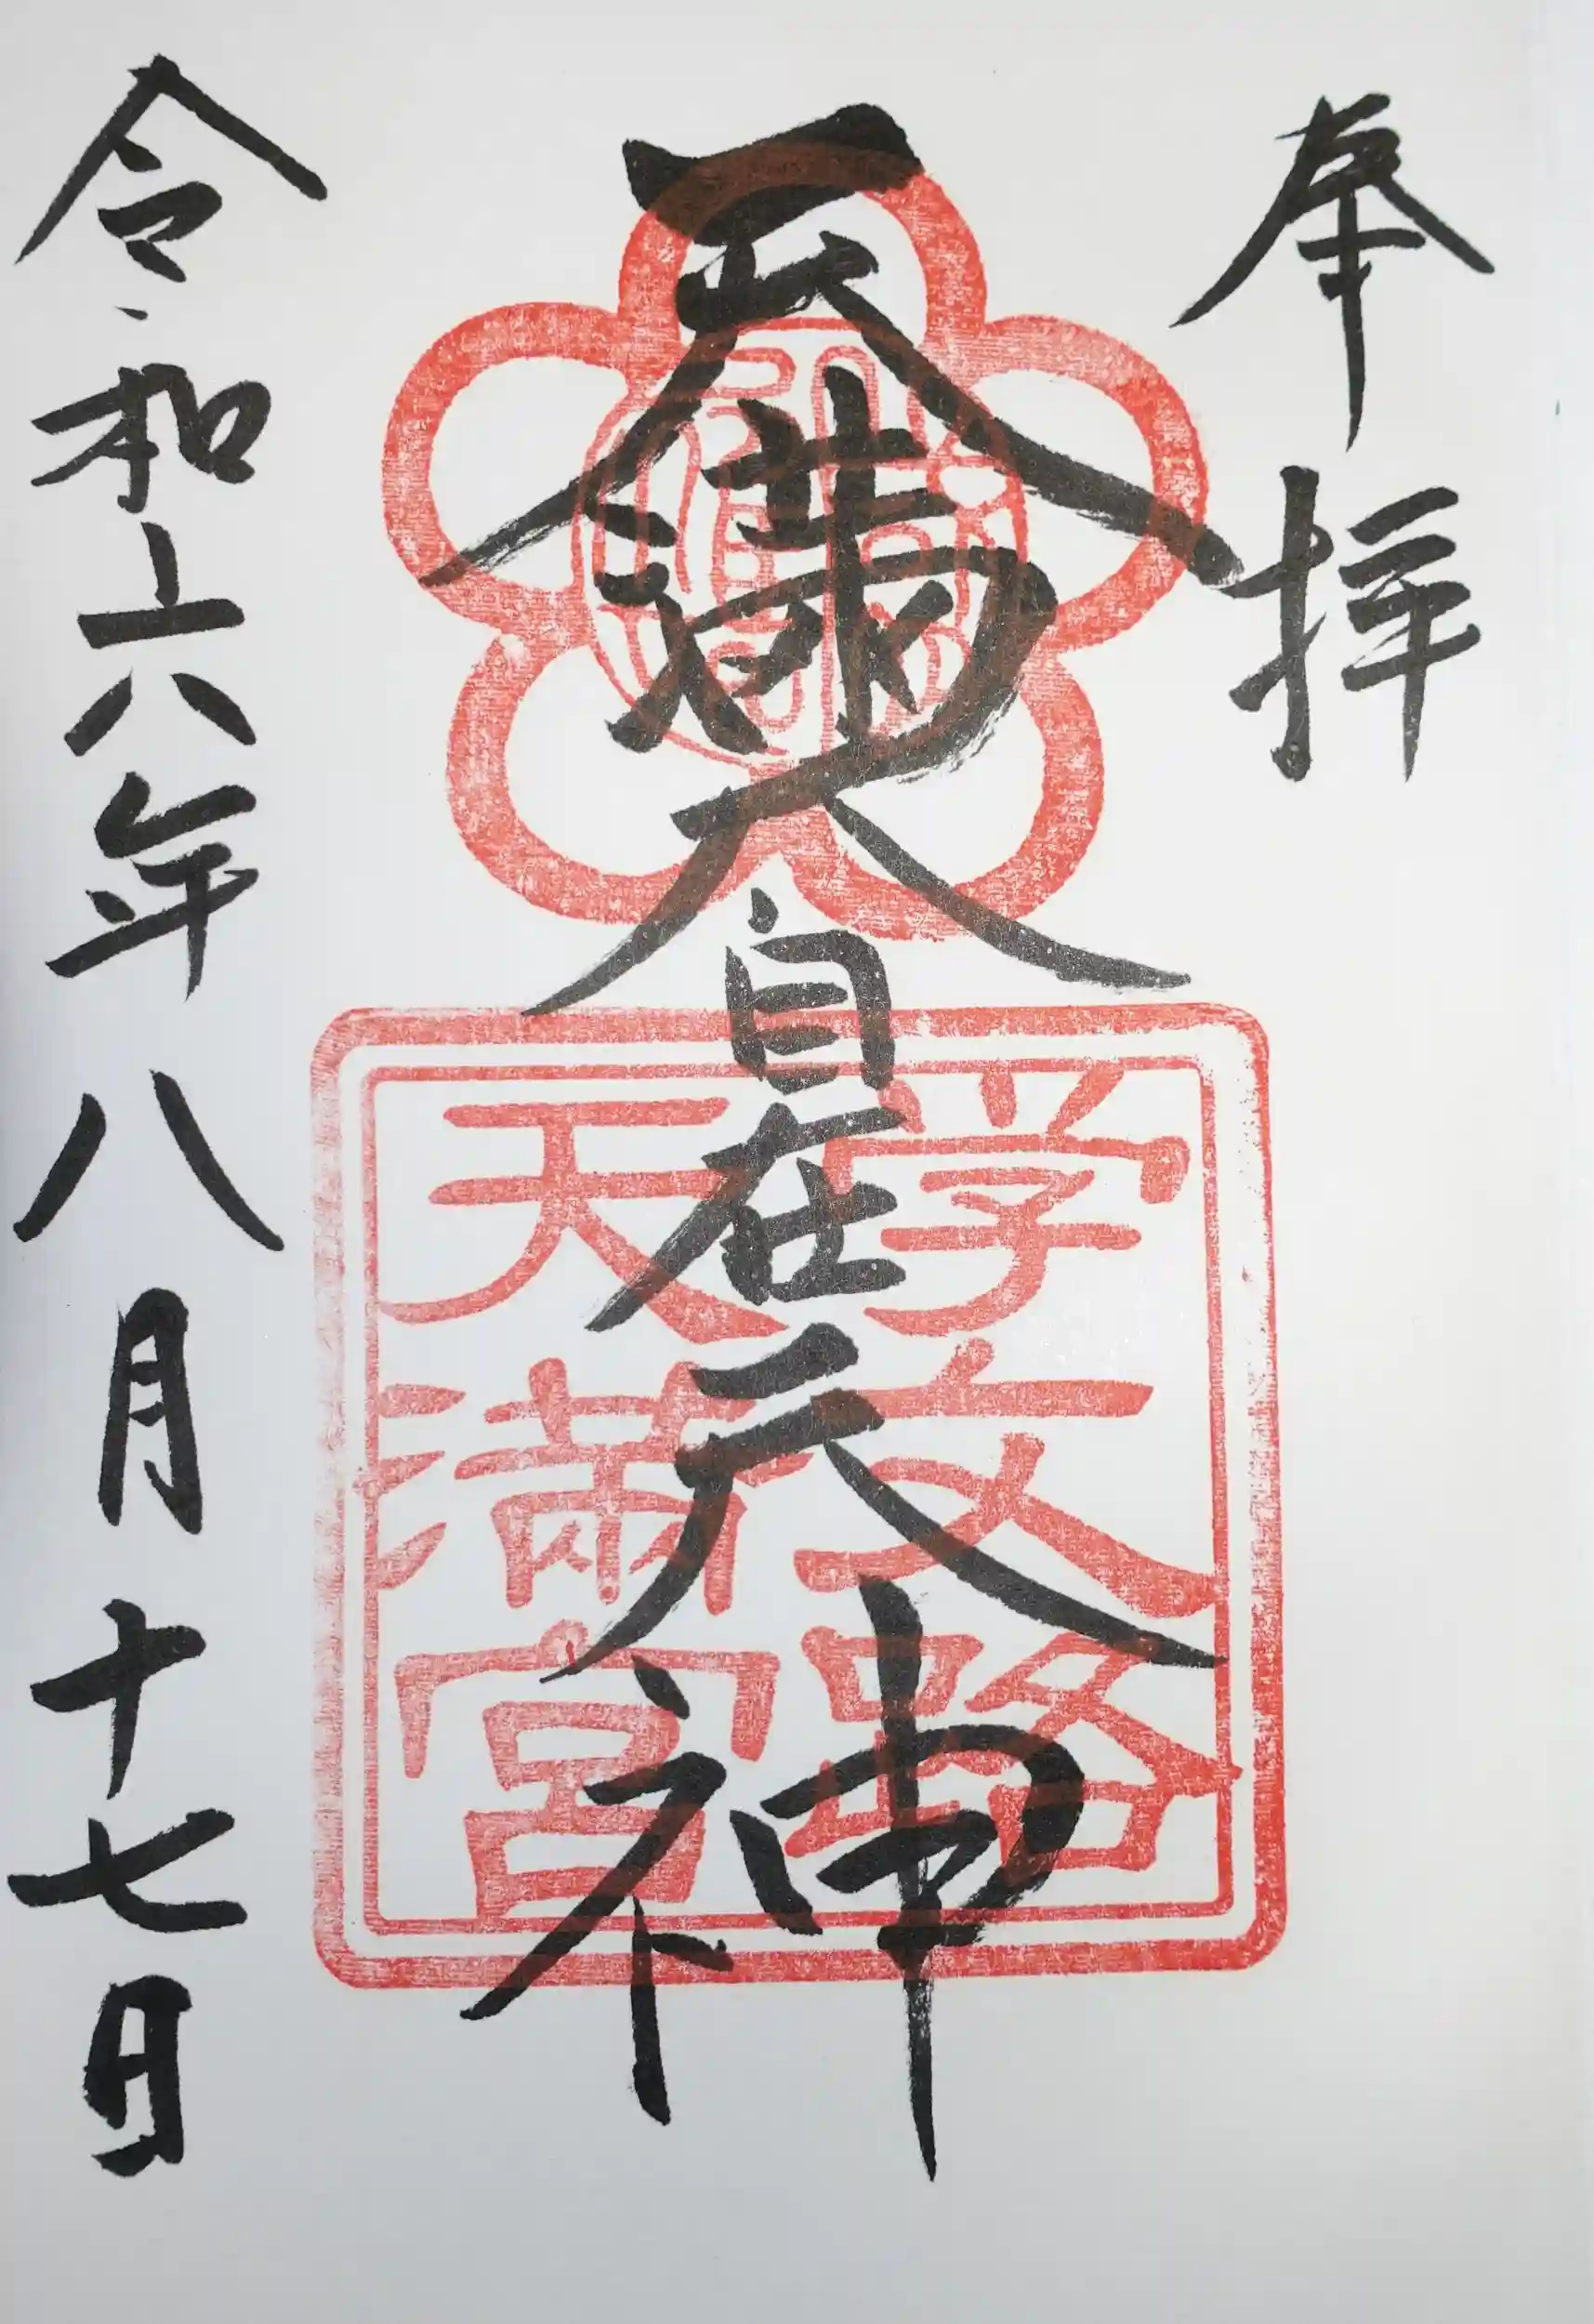 奉拝
天満大自在天神
学文路
天満宮
令和六年八月十七日